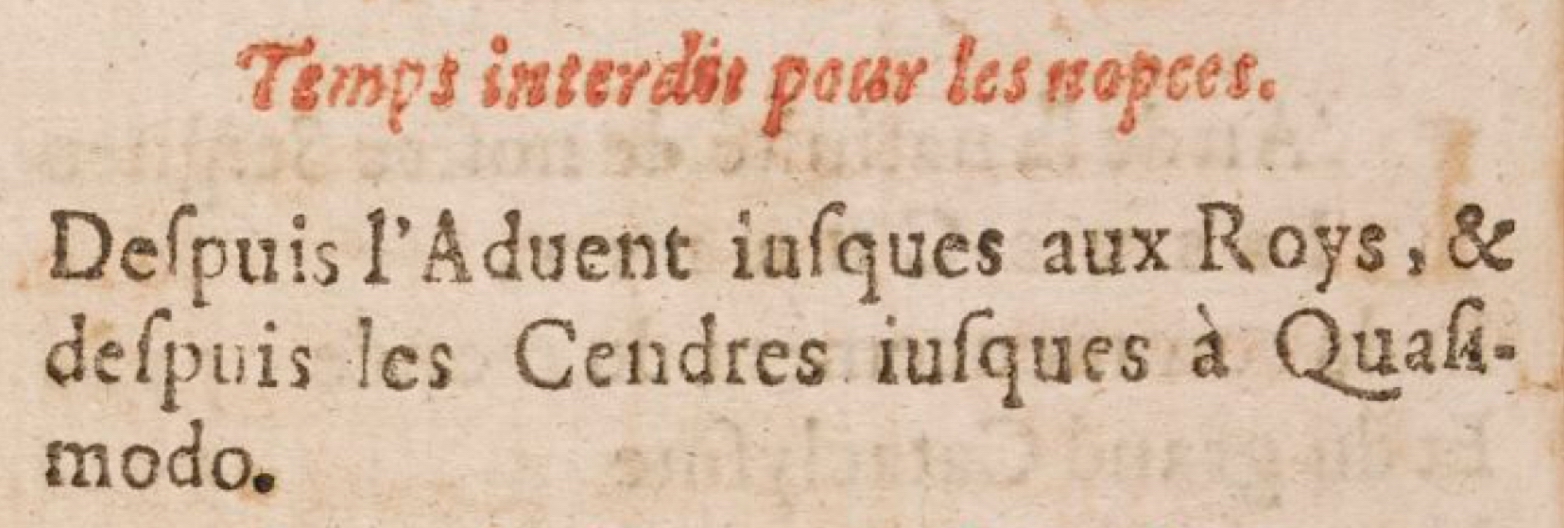 Temps interdit pour les nopces.
Deſpuis l'Aduent iuſques aux Roys, &
deſpuis les Cendres iuſques à Quaſi-
modo.